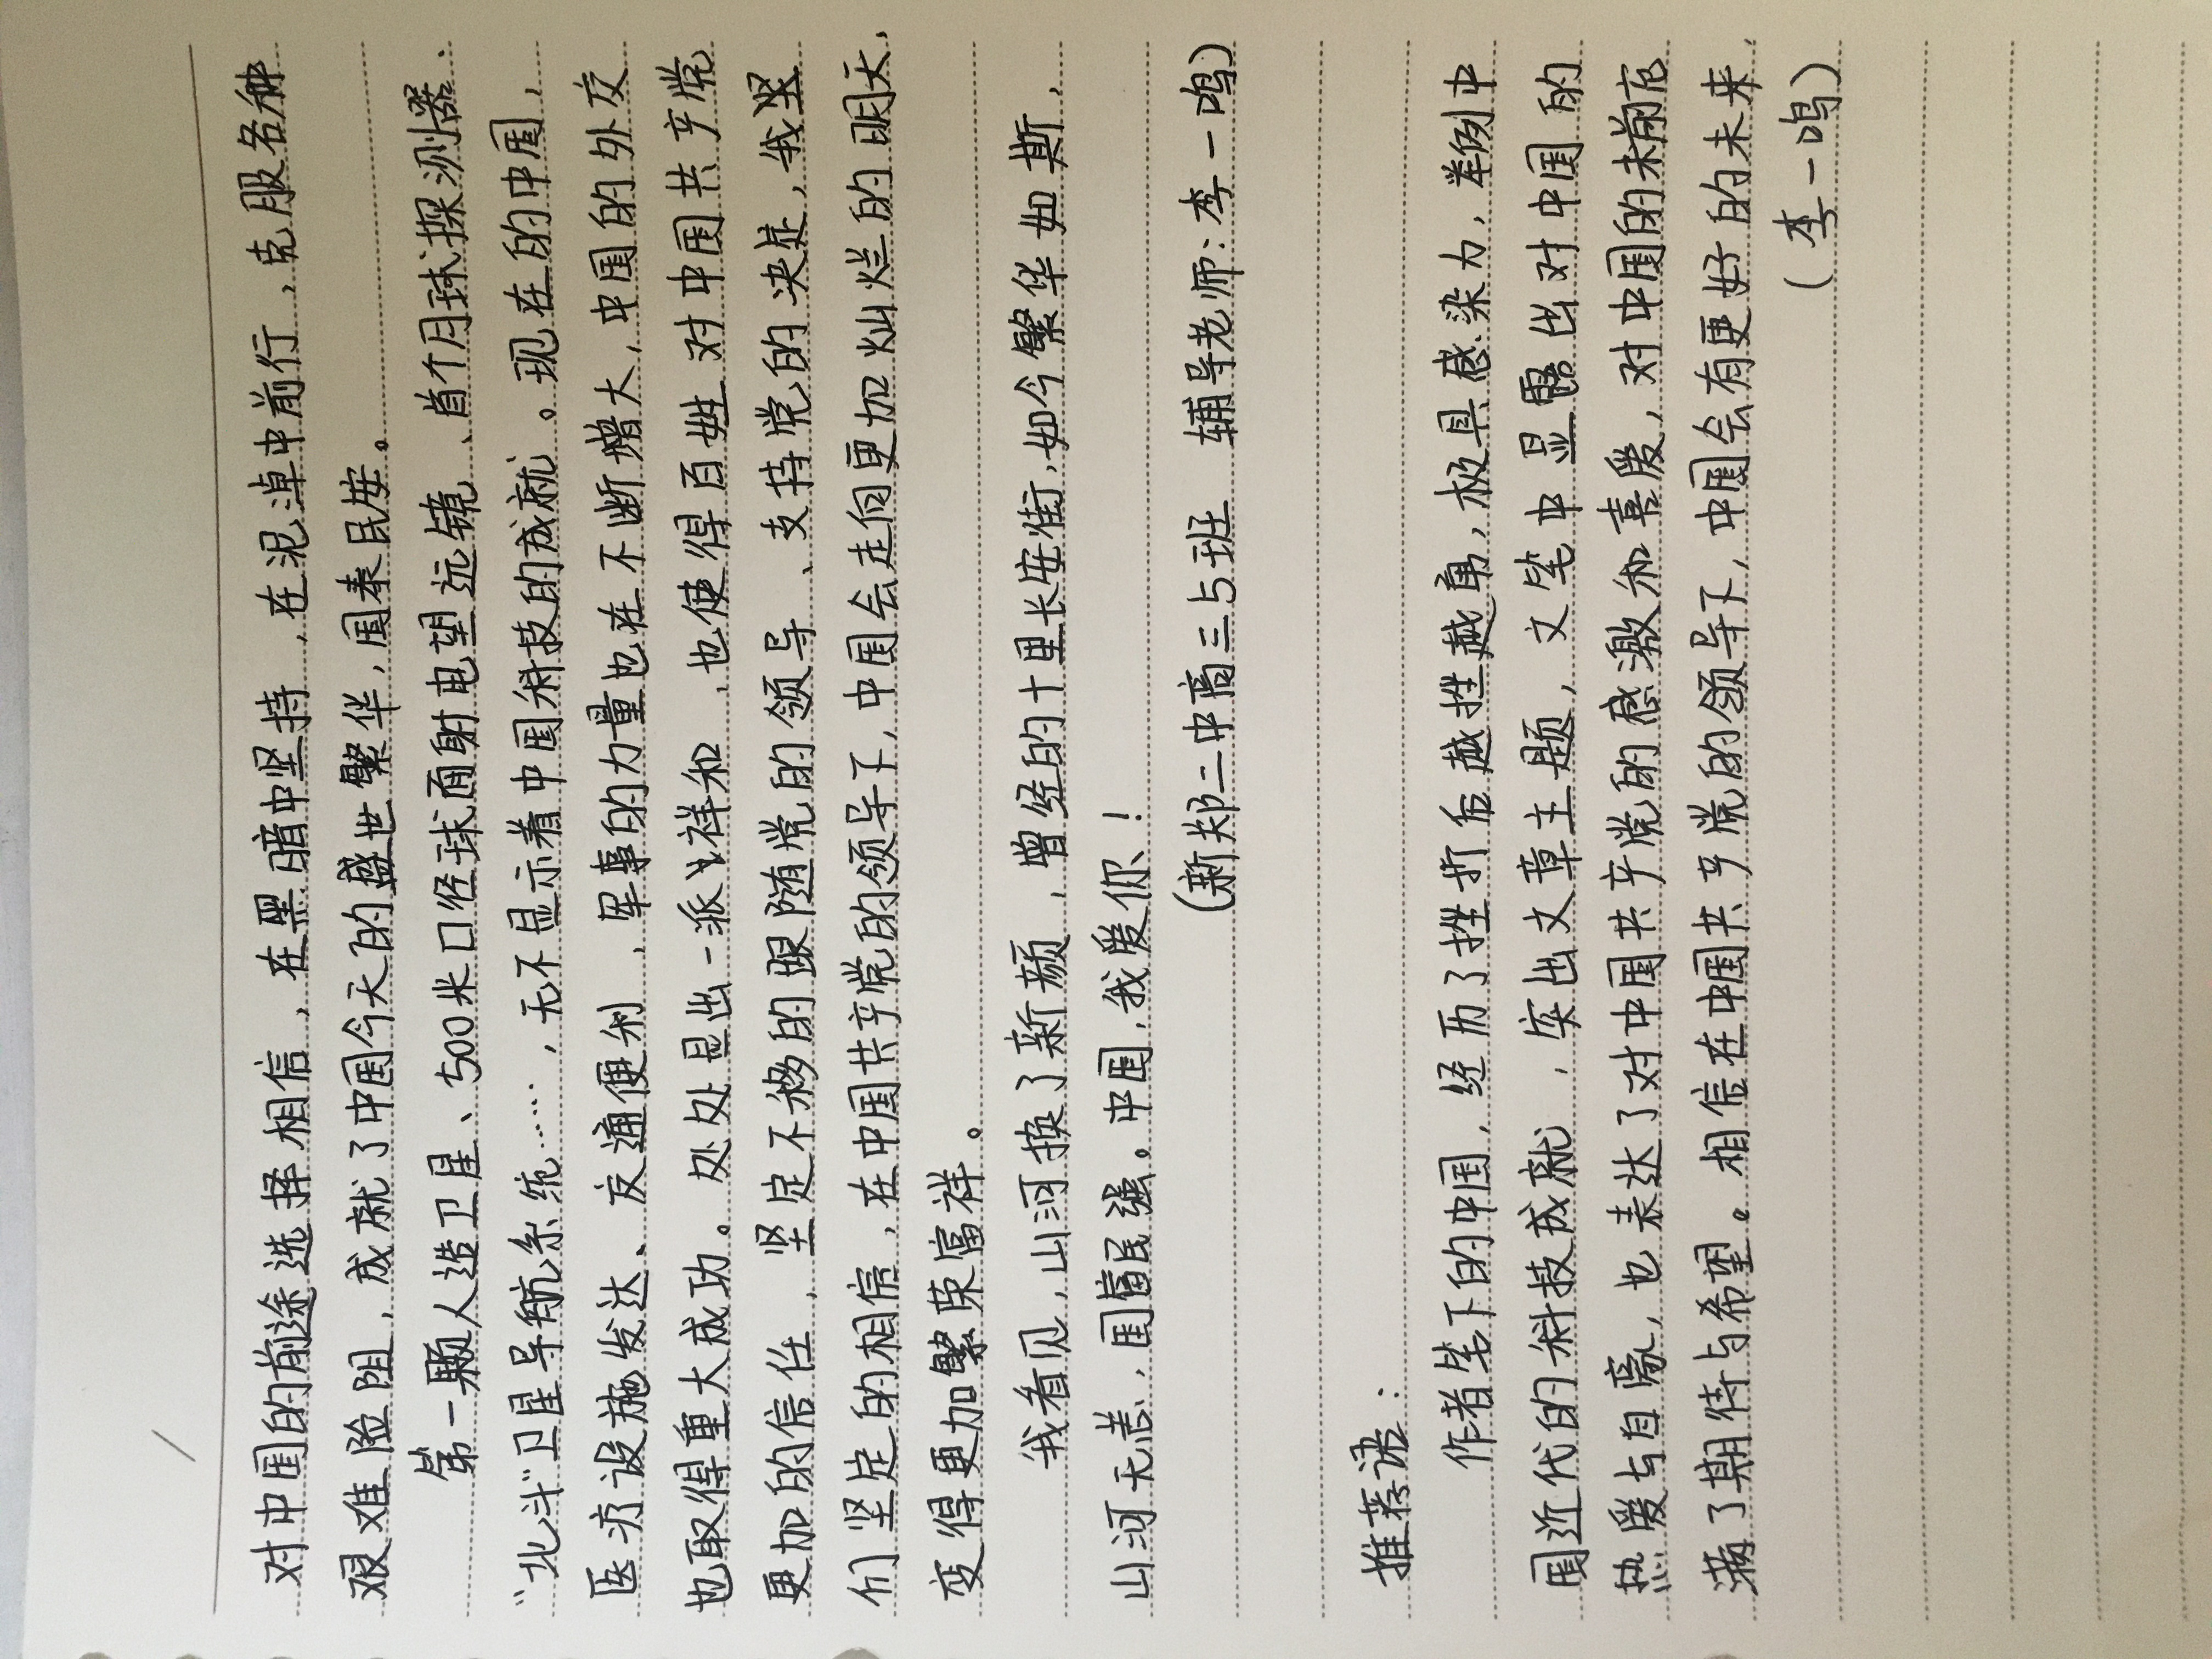 对中国的前途选择相信，在黑暗中坚持，在泥淖中前行，克服各种
艰难险阻，成就了中国今天的盛世繁华，国泰民安。
第一颗人造卫星、500米口径球面射电望远镜、首个月球探测器、
“北斗”卫星导航系统……，无不显示着中国科技的成就。现在的中国，
医疗设施发达、交通便利，军事的力量也在不断增大，中国的外交
也取得重大成功。处处显出一派祥和，也使得百姓对中国共产党
更加的信任，坚定不移的跟随党的领导、支持党的决定，我坚
们坚定的相信，在中国共产党的领导下，中国会走向更加灿烂的明天，
变得更加繁荣富祥。
我看见，山河换了新颜，曾经的十里长安街，如今繁华如斯，
山河无恙，国富民强。中国，我爱你！
（新郑二中高三与班 辅导老师：李一鸣）
推荐语：
作者笔下的中国，经历了挫折后越挫越勇，极具感染力，举例中
国近代的科技成就，突出文章主题，文笔中显露出对中国的
热爱与自豪，也表达了对中国共产党的感激和喜爱，对中国的未前充
满了期待与希望。相信在中国共产党的领导下，中国会有更好的未来，
（李一鸣）